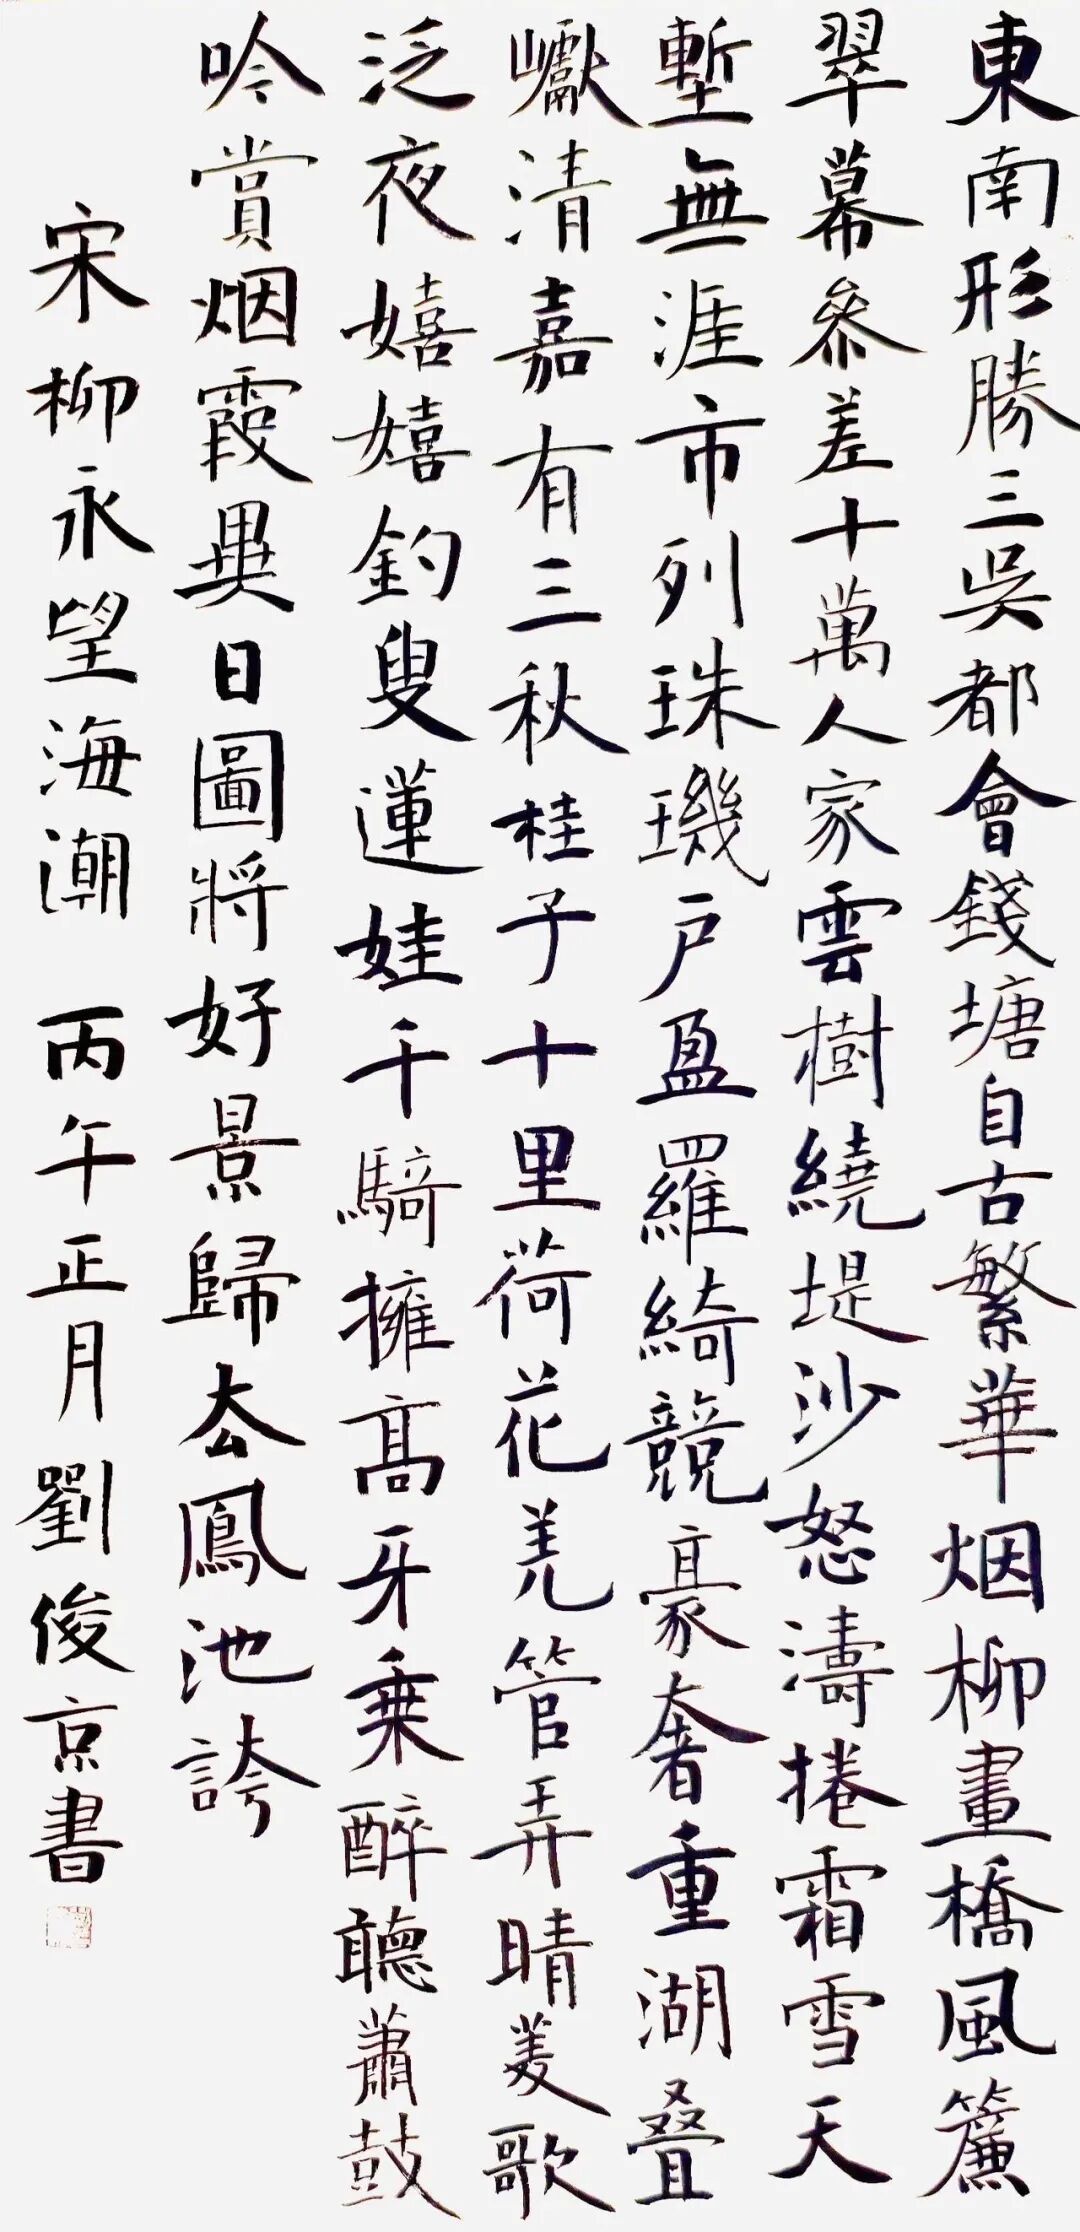 東南形勝三吳都會錢塘自古繁華烟柳畫橋風簾
翠幕參差十萬人家雲樹繞堤沙怒濤捲霜雪天
塹無涯市列珠璣戶盈羅綺競豪奢重湖叠
巘清嘉有三秋桂子十里荷花羌管弄晴菱歌
泛夜嬉嬉釣叟蓮娃千騎擁高牙乗醉聽蕭鼓
吟賞烟霞異日圖將好景歸去鳳池誇
宋柳永望海潮 丙午正月劉俊京書